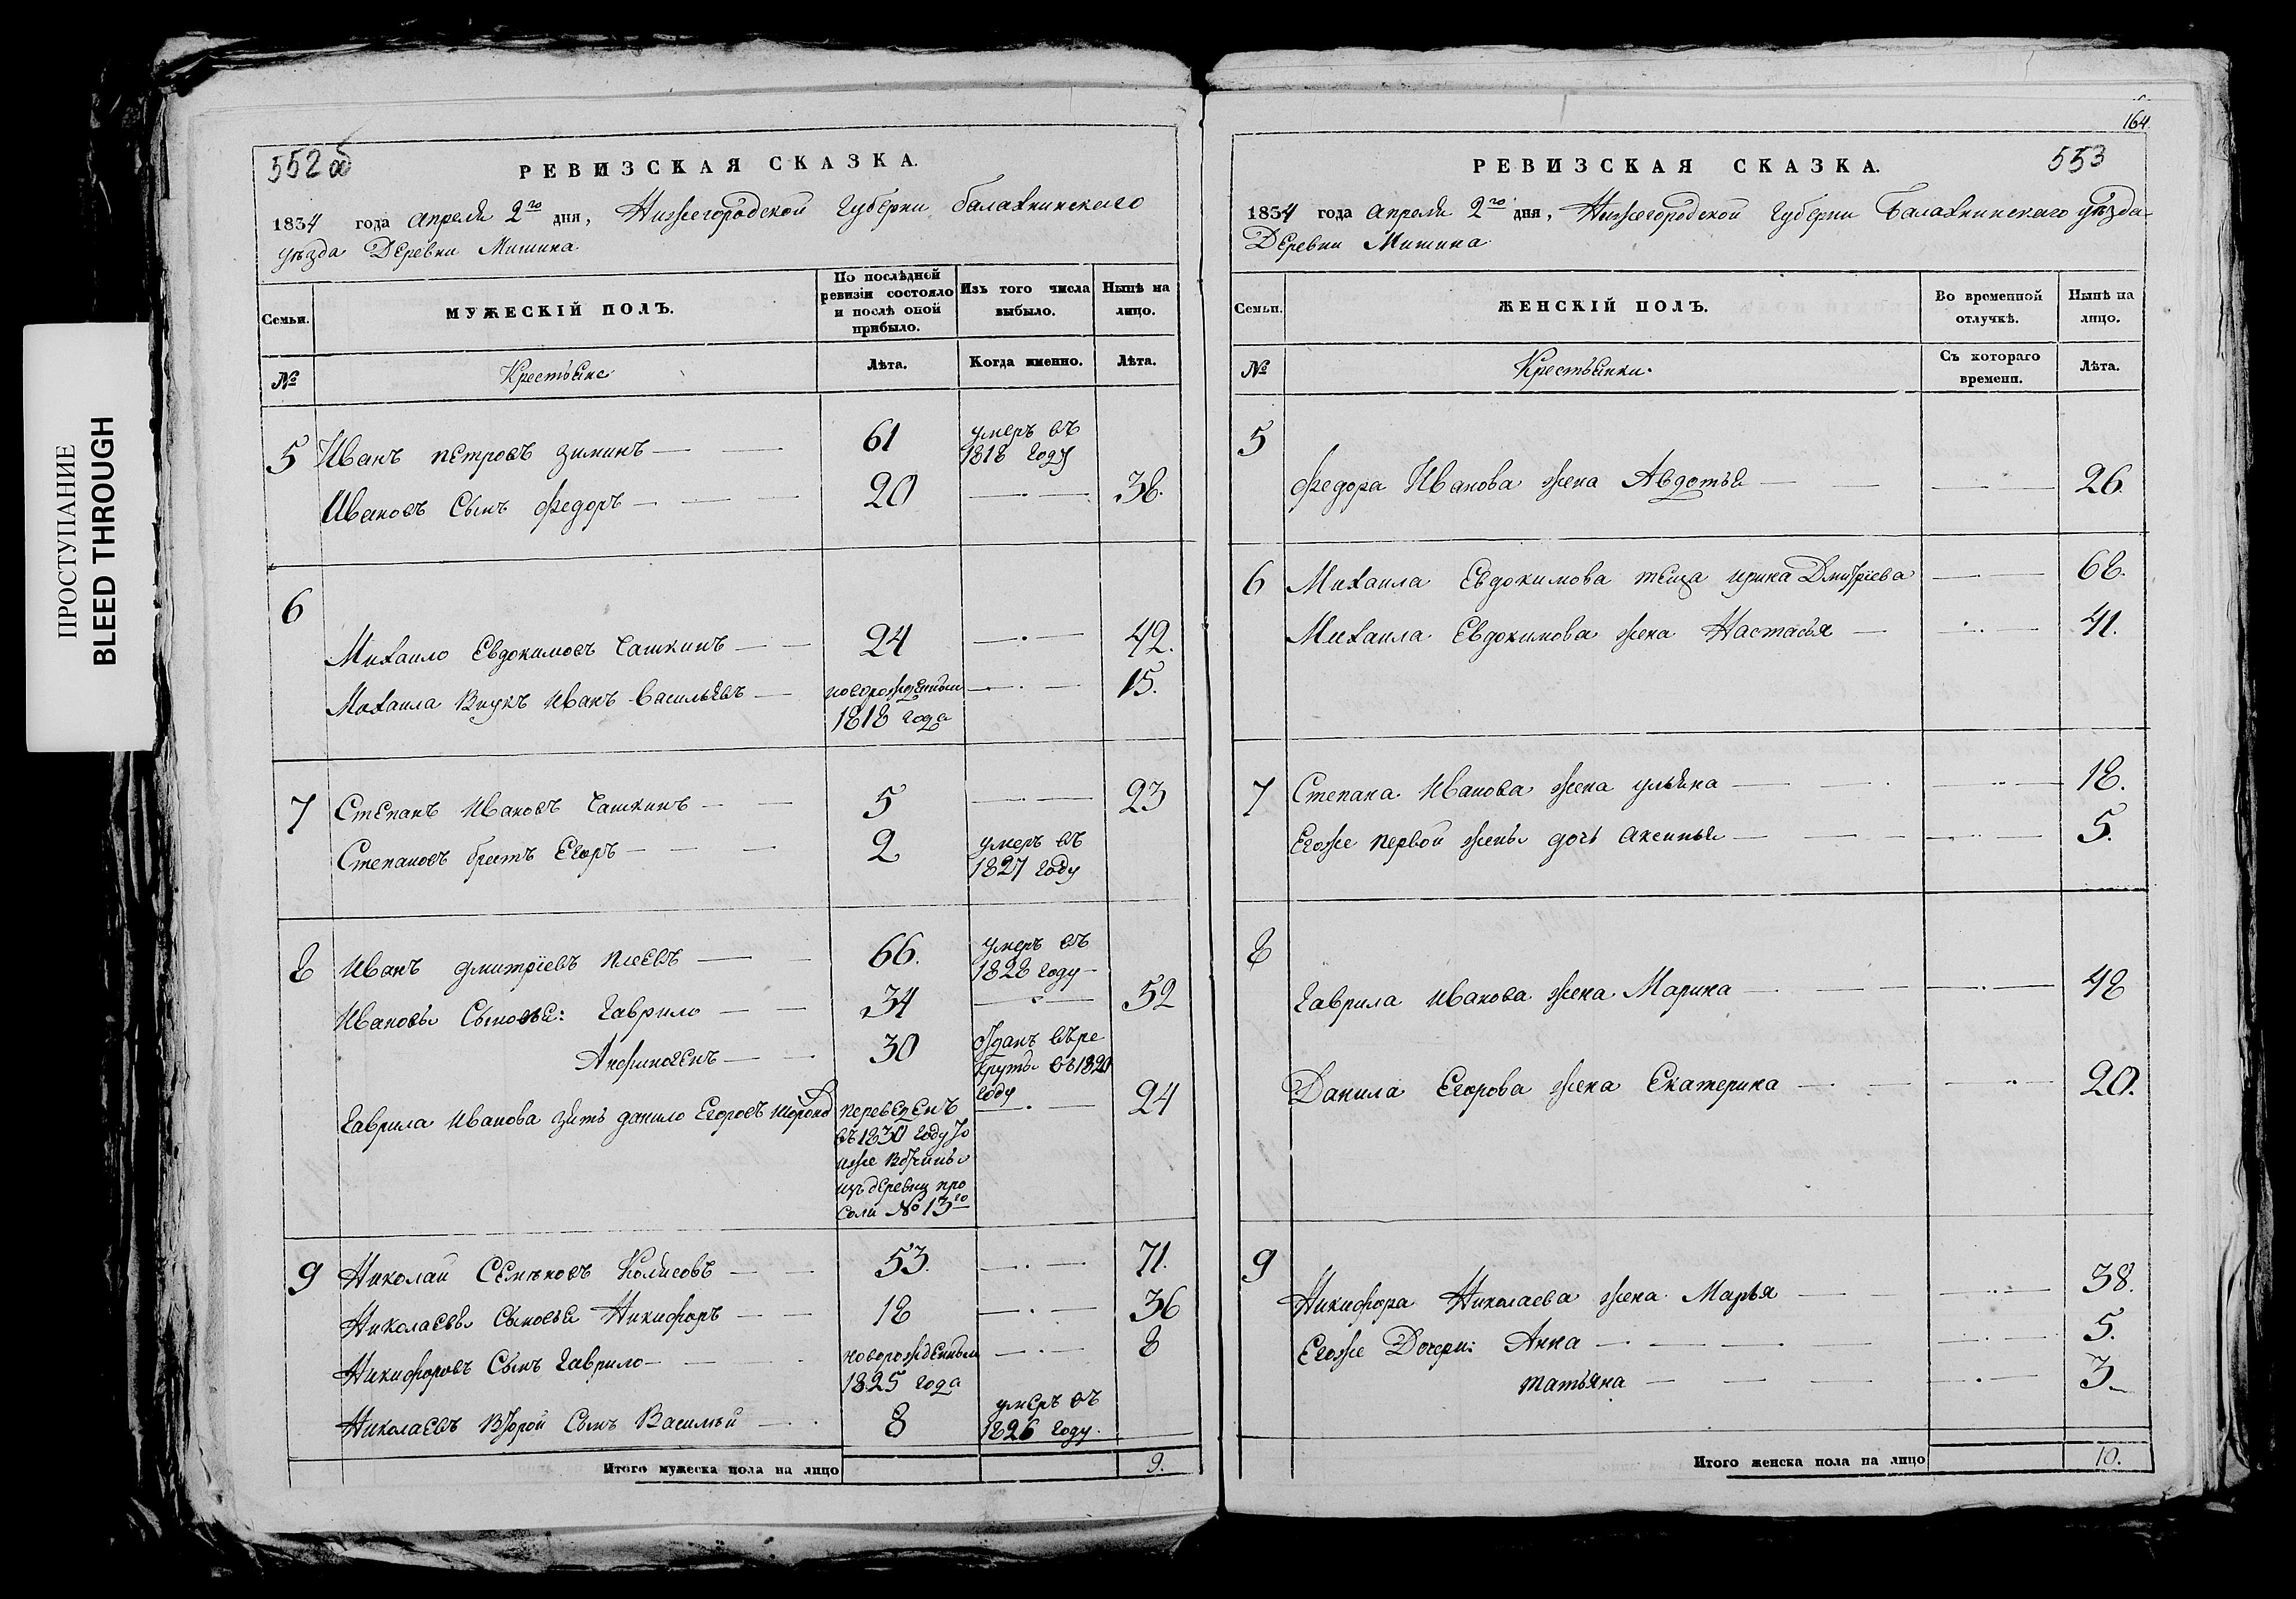 ПРОСТУПАНИЕ
BLEED THROUGH
552 об
РЕВИЗСКАЯ СКАЗКА.
1834 года апреля 2го дня, Нижегородской Губерни балахнинскаго
уѣзда Деревни Мишина
Семьи.
МУЖЕСКІЙ ПОЛЪ.
По послѣдней
ревизіи состояло
и послѣ оной
прибыло.
Изъ того числа
выбыло.
Нынѣ на
лицо.
№
Крестьяне
Лѣта.
Когда именно.
Лѣта.
5 Иванъ петровъ зиминъ 61 умеръ въ
1818 году
Ивановъ Сынъ федоръ 20 38.
6
Михаило Евдокимовъ Чашкинъ 24 42.
Михаила Внукъ Иванъ Васильевъ новорожденныи 15.
1818 года
7 Степанъ Ивановъ Чашкинъ 5 23
Степановъ братъ Егоръ 2 умеръ въ
1827 году
8 Иванъ дмитріевъ 66. умеръ въ
1828 году
Ивановы Сыновья: Гаврило 34 52
Анфиногенъ 30 отданъ въ ре
круты въ 1820
году
Гаврила Иванова зять данило Егоровъ переведенъ 24
въ 1830 году То
иже Вотчины
изъ деревни про
соли № 13го
9 Николаи Семеновъ 53. 71.
Николаевы Сыновья Никифоръ 18 36
Никифоровъ Сынъ Гаврило новорожденныи 8
1825 года
Николаевъ Второй Сынъ Василий 8 умеръ въ
1826 году.
Итого мужеска пола на лицо 9.
164
553
РЕВИЗСКАЯ СКАЗКА.
1834 года апреля 2го дня, Нижегородской Губерни Балахнинскаго уѣзда
Деревни Мишина
Семьи.
ЖЕНСКІЙ ПОЛЪ.
Во временной
отлучкѣ.
Нынѣ на
лицо.
№
Крестьянки.
Съ котораго
времени.
Лѣта.
5
федора Иванова жена Авдотья 26.
6 Михаила Евдокимова теща ирина Дмитріева 68.
Михаила Евдокимова жена Настасья 41.
7 Степана Иванова жена ульяна 18.
Егоже первой жены дочь аксинья 5.
8
Гаврила иванова жена Марина 48
Данила Егорова жена Екатерина 20.
9
Никифора Николаева жена Марья 38.
Егоже Дочери: Анна 5.
татьяна 3
Итого женска пола на лицо 10.